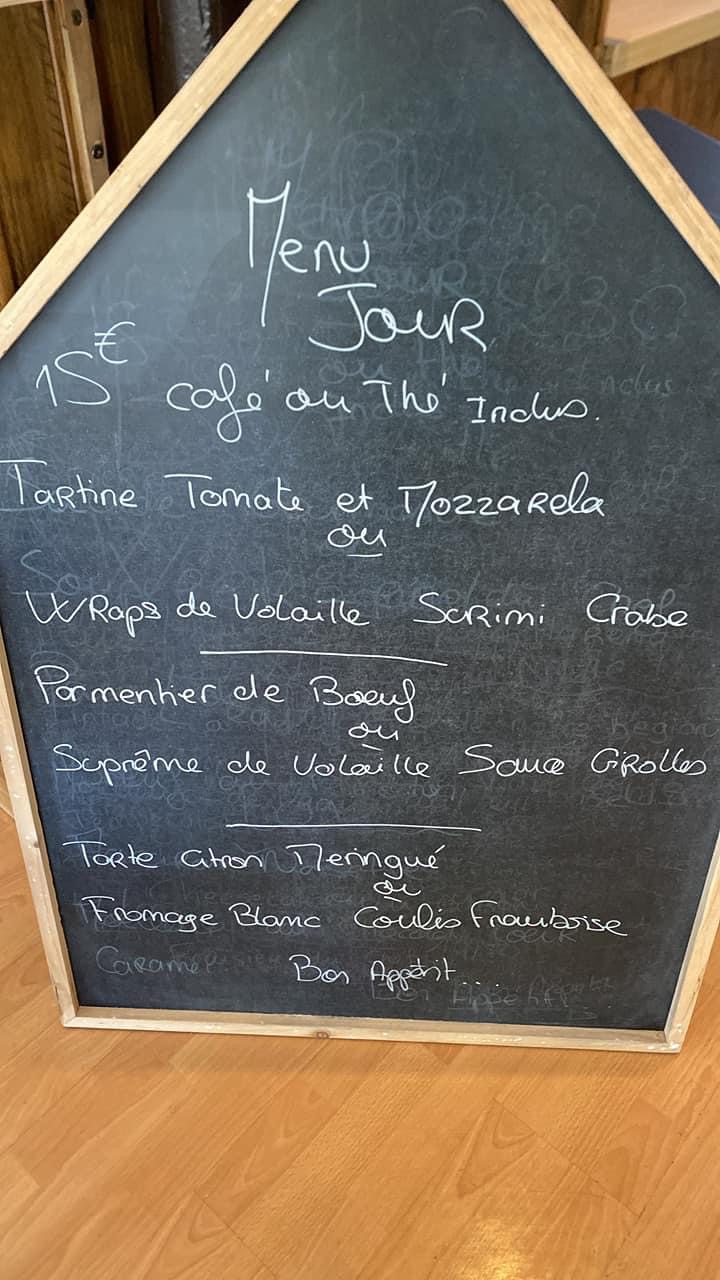 Menu
Jour
15€ café ou Thé Inclus.
Tartine Tomate et Mozzarela
ou
Wraps de Volaille Surimi Crabe
Parmentier de Boeuf
ou
Suprême de Volaille Sauce Girolles
Tarte Citron Meringué
ou
Fromage Blanc Coulis Framboise
Caramel
Bon Appétit...